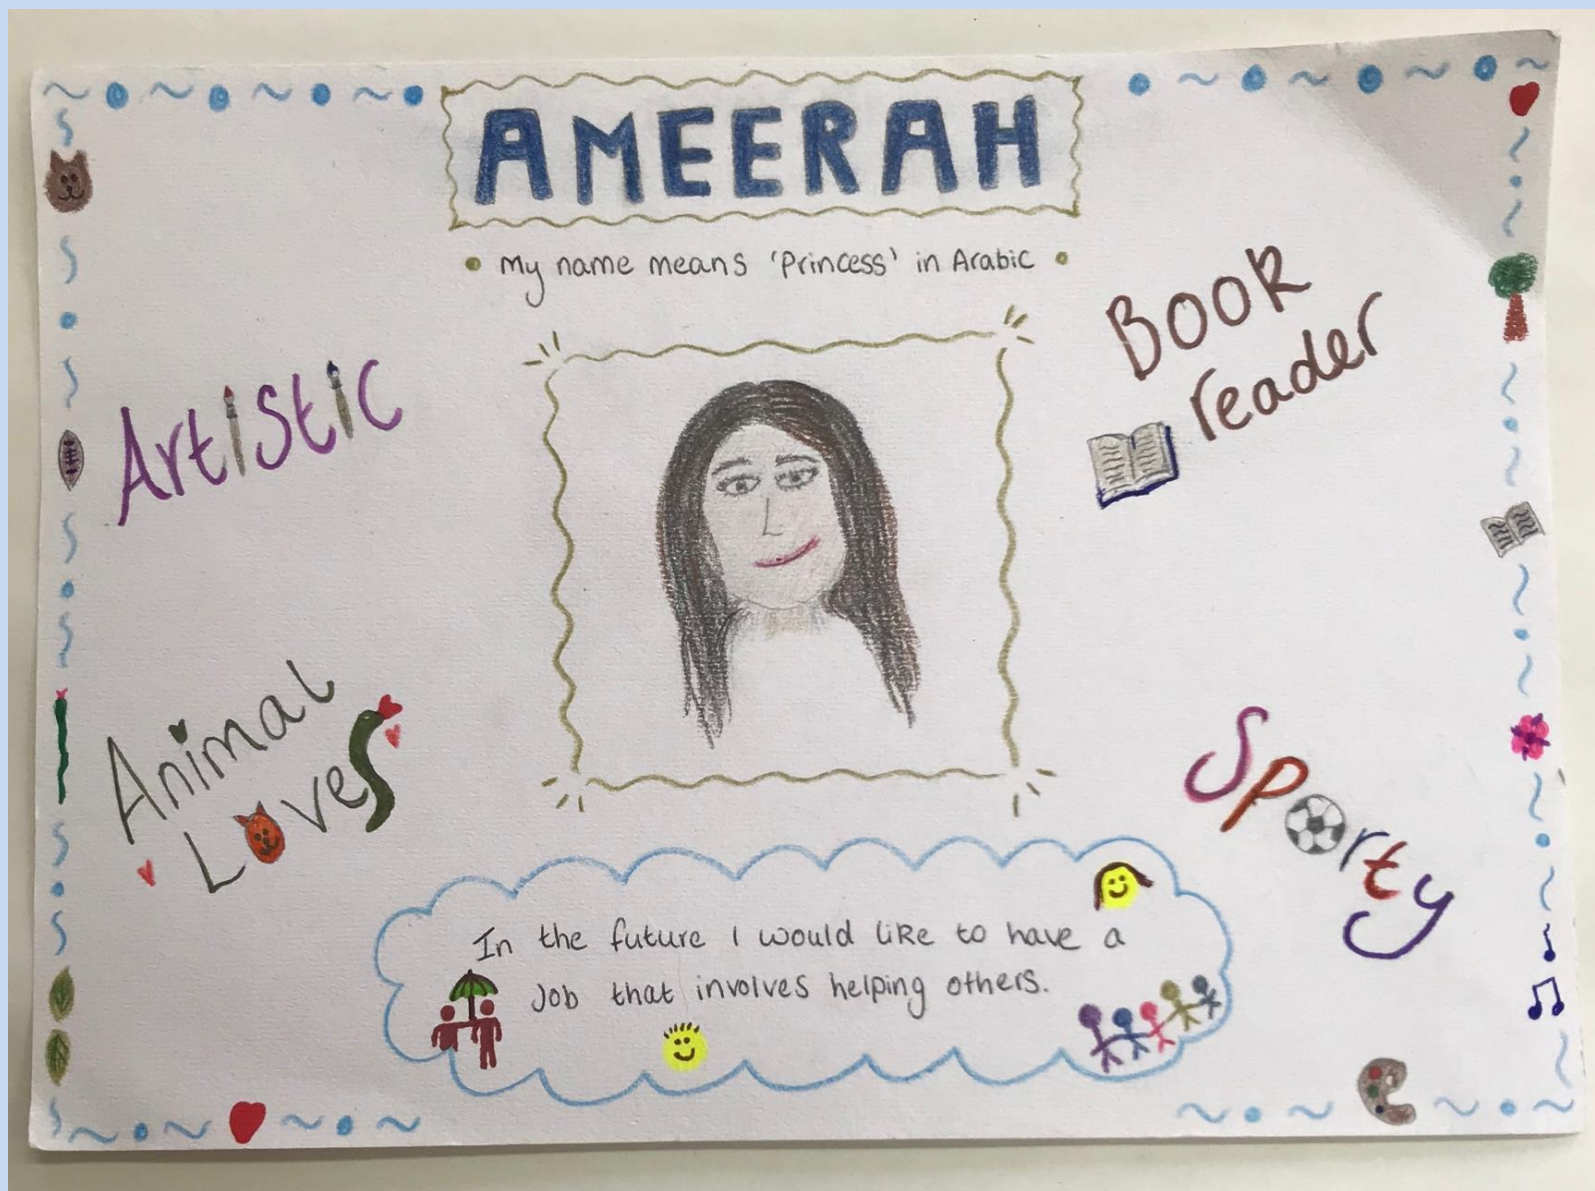 AMEERAH
• My name means 'Princess' in Arabic •
Artistic
Book
reader
Animal
Loves
Sporty
In the future I would like to have a
Job that involves helping others.